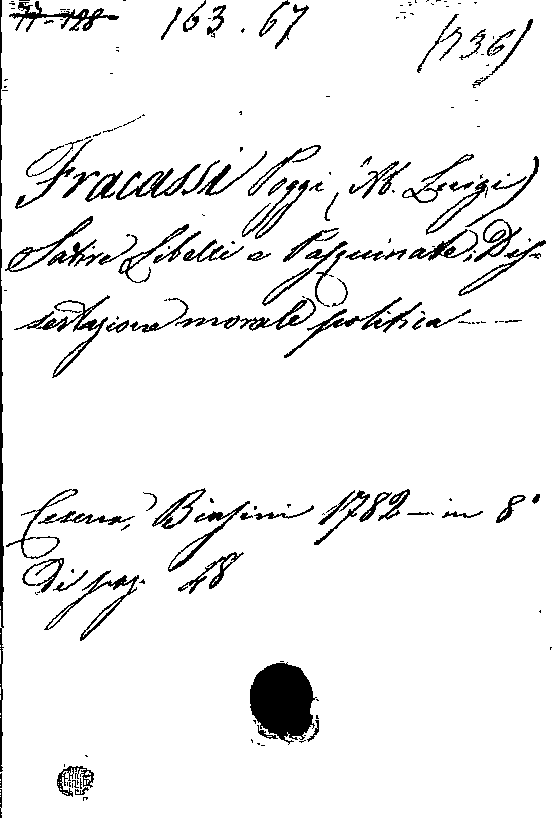 77-128 163.67
(736)
Fracassi Poggi (Ab. Luigi)
Satire Libelli e Pasquinate, Dis-
sertazione morale politica —
Cesena, Biasini 1782 — in 8°
Di pag. 48